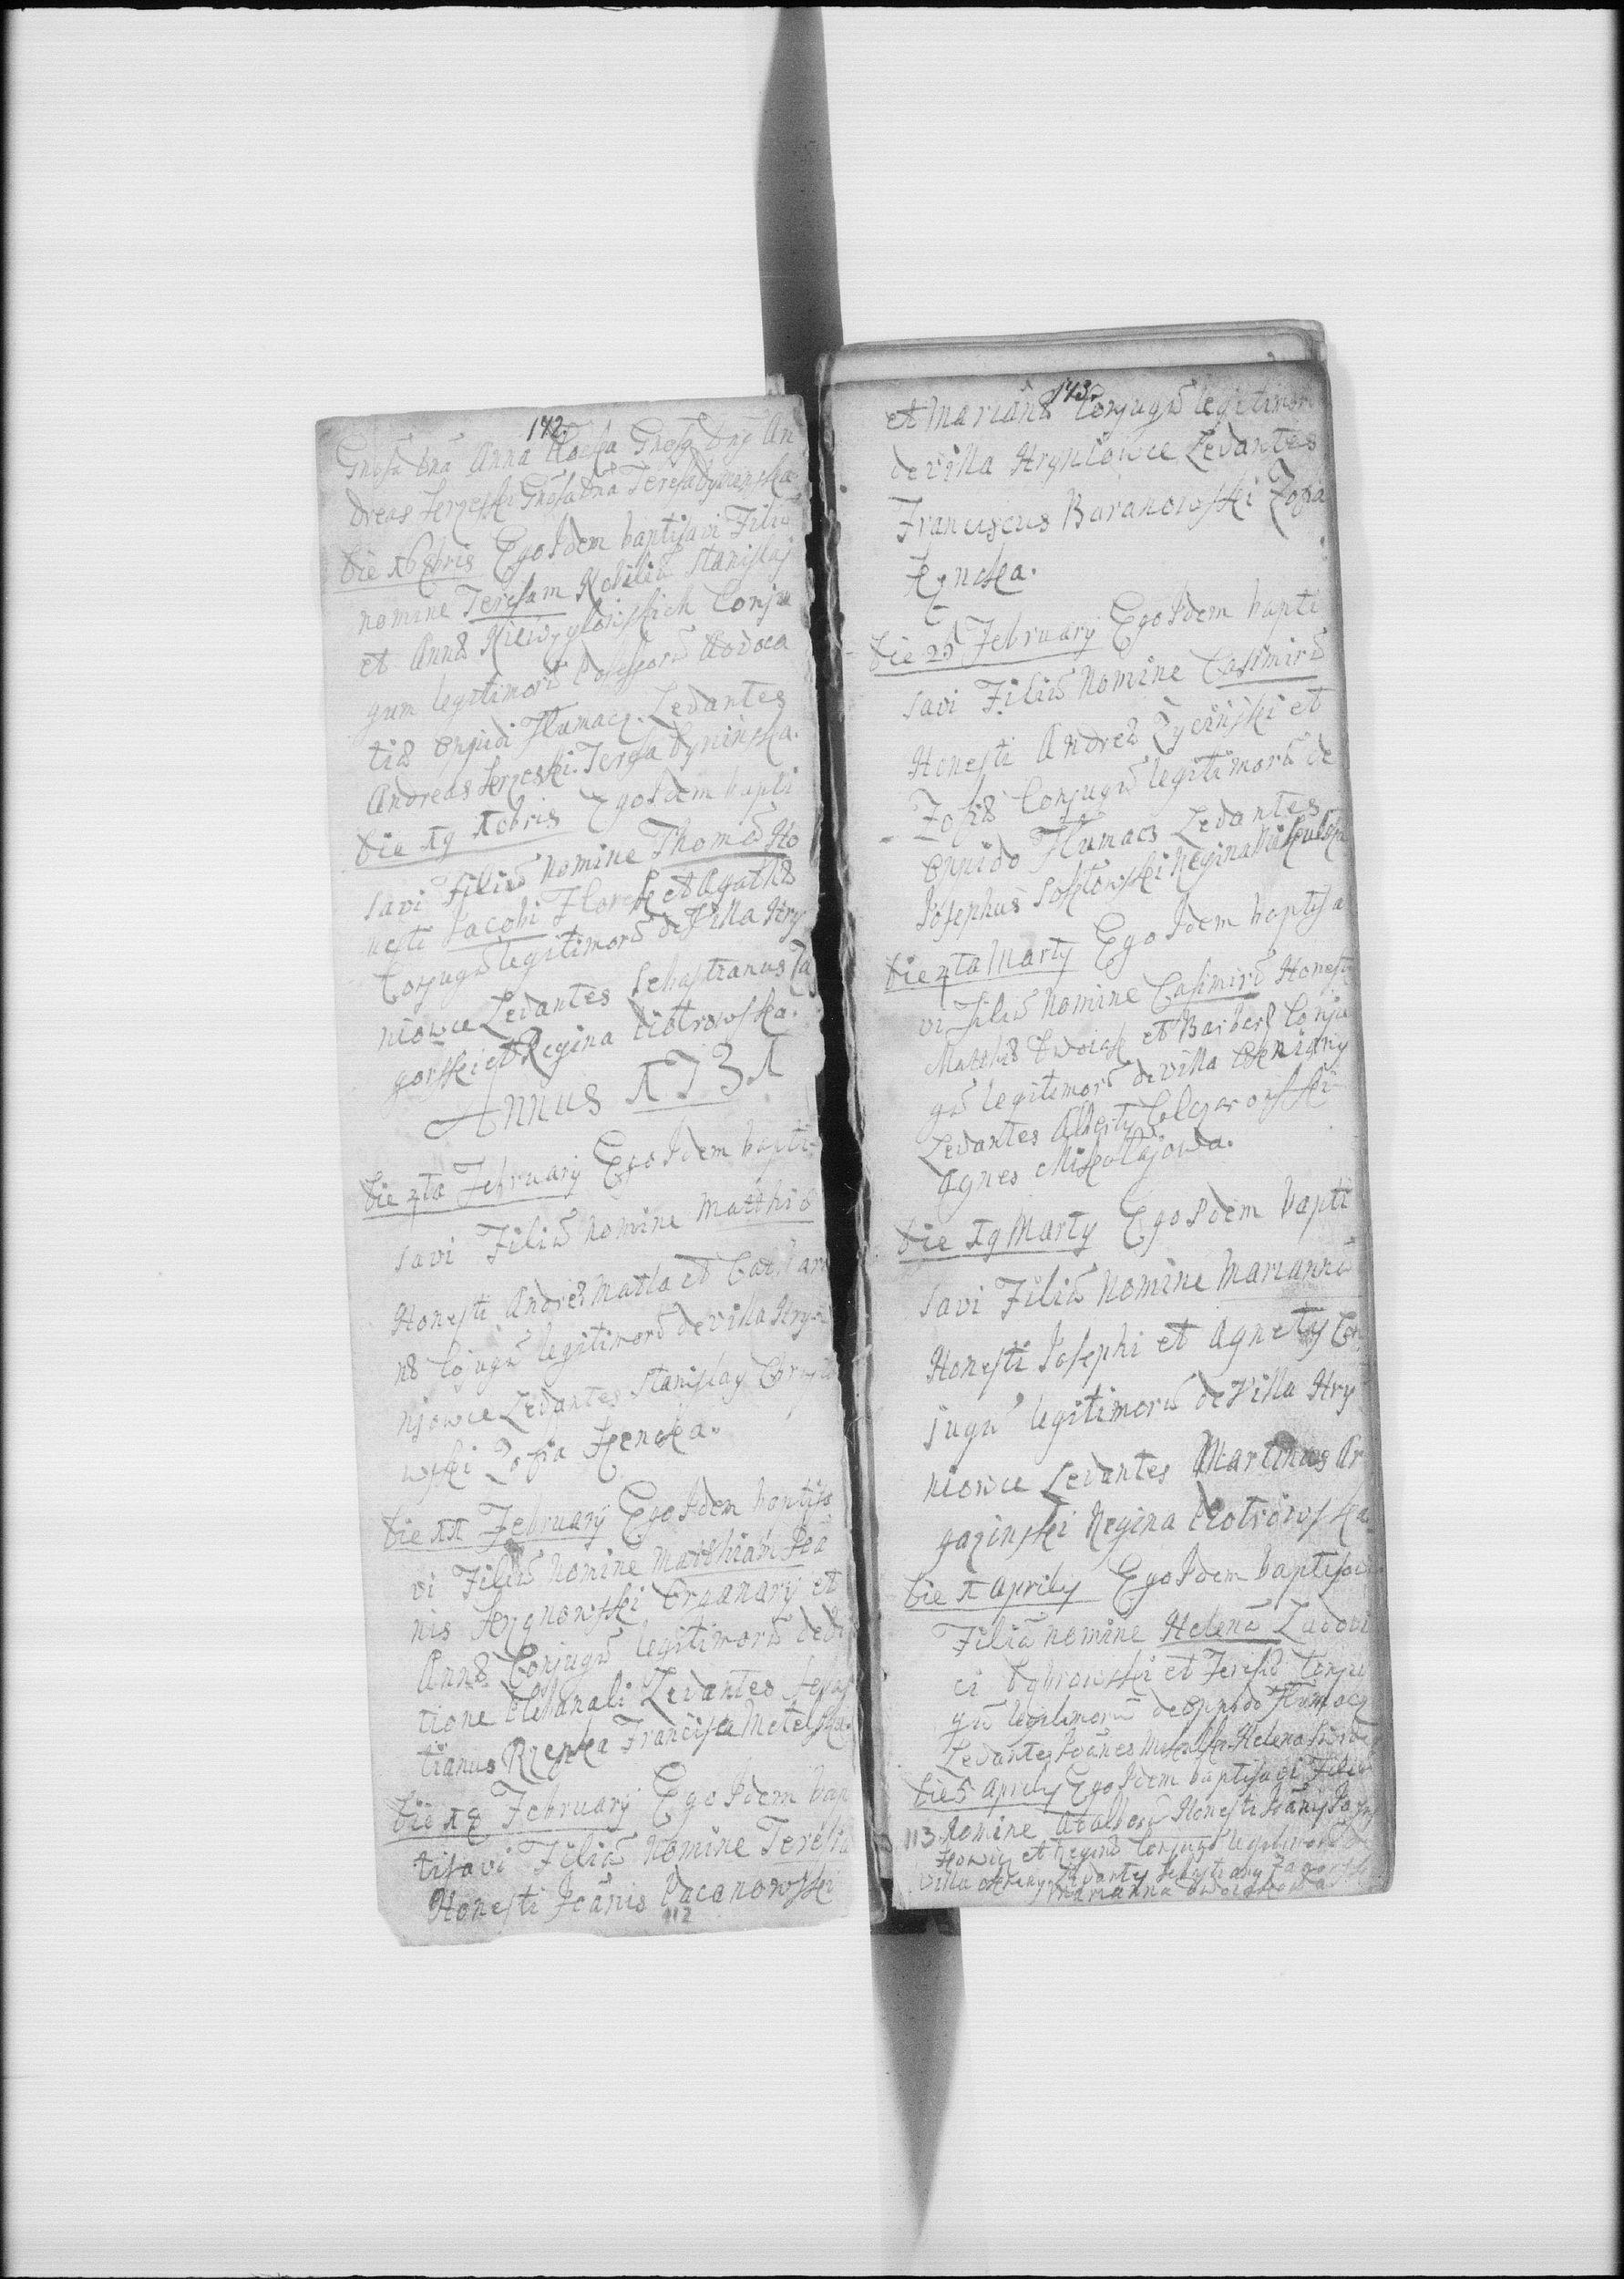 142.
Gnosa Dna Anna Gnosq Dnq An
dreas Gnosa Dna Teresa Dyninska
Die 16 Xbris Ego Idem baptisavi Filiã
nomine Teresam Nobiliũ Stanislaj
et Annæ Conju
gum legitimorũ Posessorũ Advoca
tiæ Oppidi Tłumacz. Levantes
Andreas Teresa Dyninska.
Die 19 Xbris Ego Idem bapti
savi Filiũ nomine Thomã Ho
nesti Jacobi Florek et Agathæ
Conjugũ legitimorũ de Villa Hry
niowce Levantes Sebastianus Za
gorski et Regina Piotrowska.
Annus 1731
Die 4ta February Ego Idem bapti
savi Filiũ nomine Matthiã
Honesti Andreæ Matla et Cathari
næ Cojugũ legitimorũ de villa Hry
niowce Levantes Stanislaq
wski Zofia
Die 11 February Ego Idem baptisa
vi Filiũ nomine Matthiam Joã
nis Organarij et
Annæ Conjugũ legitimorũ de
tione Plebanali Levantes Sebas
tianus Rzepka Francisca Metelska.
Die 18 February Ego Idem bap
tisavi Filiã nomine Teresiã
Honesti Joãnis Pacanowski
112
143.
et Mariãnæ Conjugũ legitimor
de villa Hryniowce Levantes
Franciscus Baranowski Zofia
Die 25 February Ego Idem bapti
savi Filiũ nomine Casimirũ
Honesti Andreæ Zycinski et
Zofiæ Conjugũ legitimorũ de
Oppido Tłumacz Levantes
Josephus Regina
Die 4ta Marty Ego Idem baptisa
vi Filiũ nomine Casimirũ Honesti
Matthiæ et Barbaræ Conju
gũ legitimorũ de villa
Levantes Albertq
Agnes Mikołajowa.
Die 19 Marty Ego Idem bapti
savi Filiã nomine Mariannã
Honesti Josephi et Agnetis Con
jugũ legitimorũ de Villa Hry
niowce Levantes Martinus Ar
gazinski Regina Piotrowska.
Die 1 Aprily Ego Idem baptisavi
Filiã nomine Helenã Ludovi
ci Dybrowski et Teresiæ Conju
gũ legitimorũ de Oppido Tłumacz
Levantes Joãnes Helena
Die 5 Aprily Ego Idem baptisavi Filiũ
113. Nomine Adalberũ Honesti Joãnis
et Reginæ Conjugũ legitimorũ de
Villa Levantes Sebastianq Zagorski
Marianna